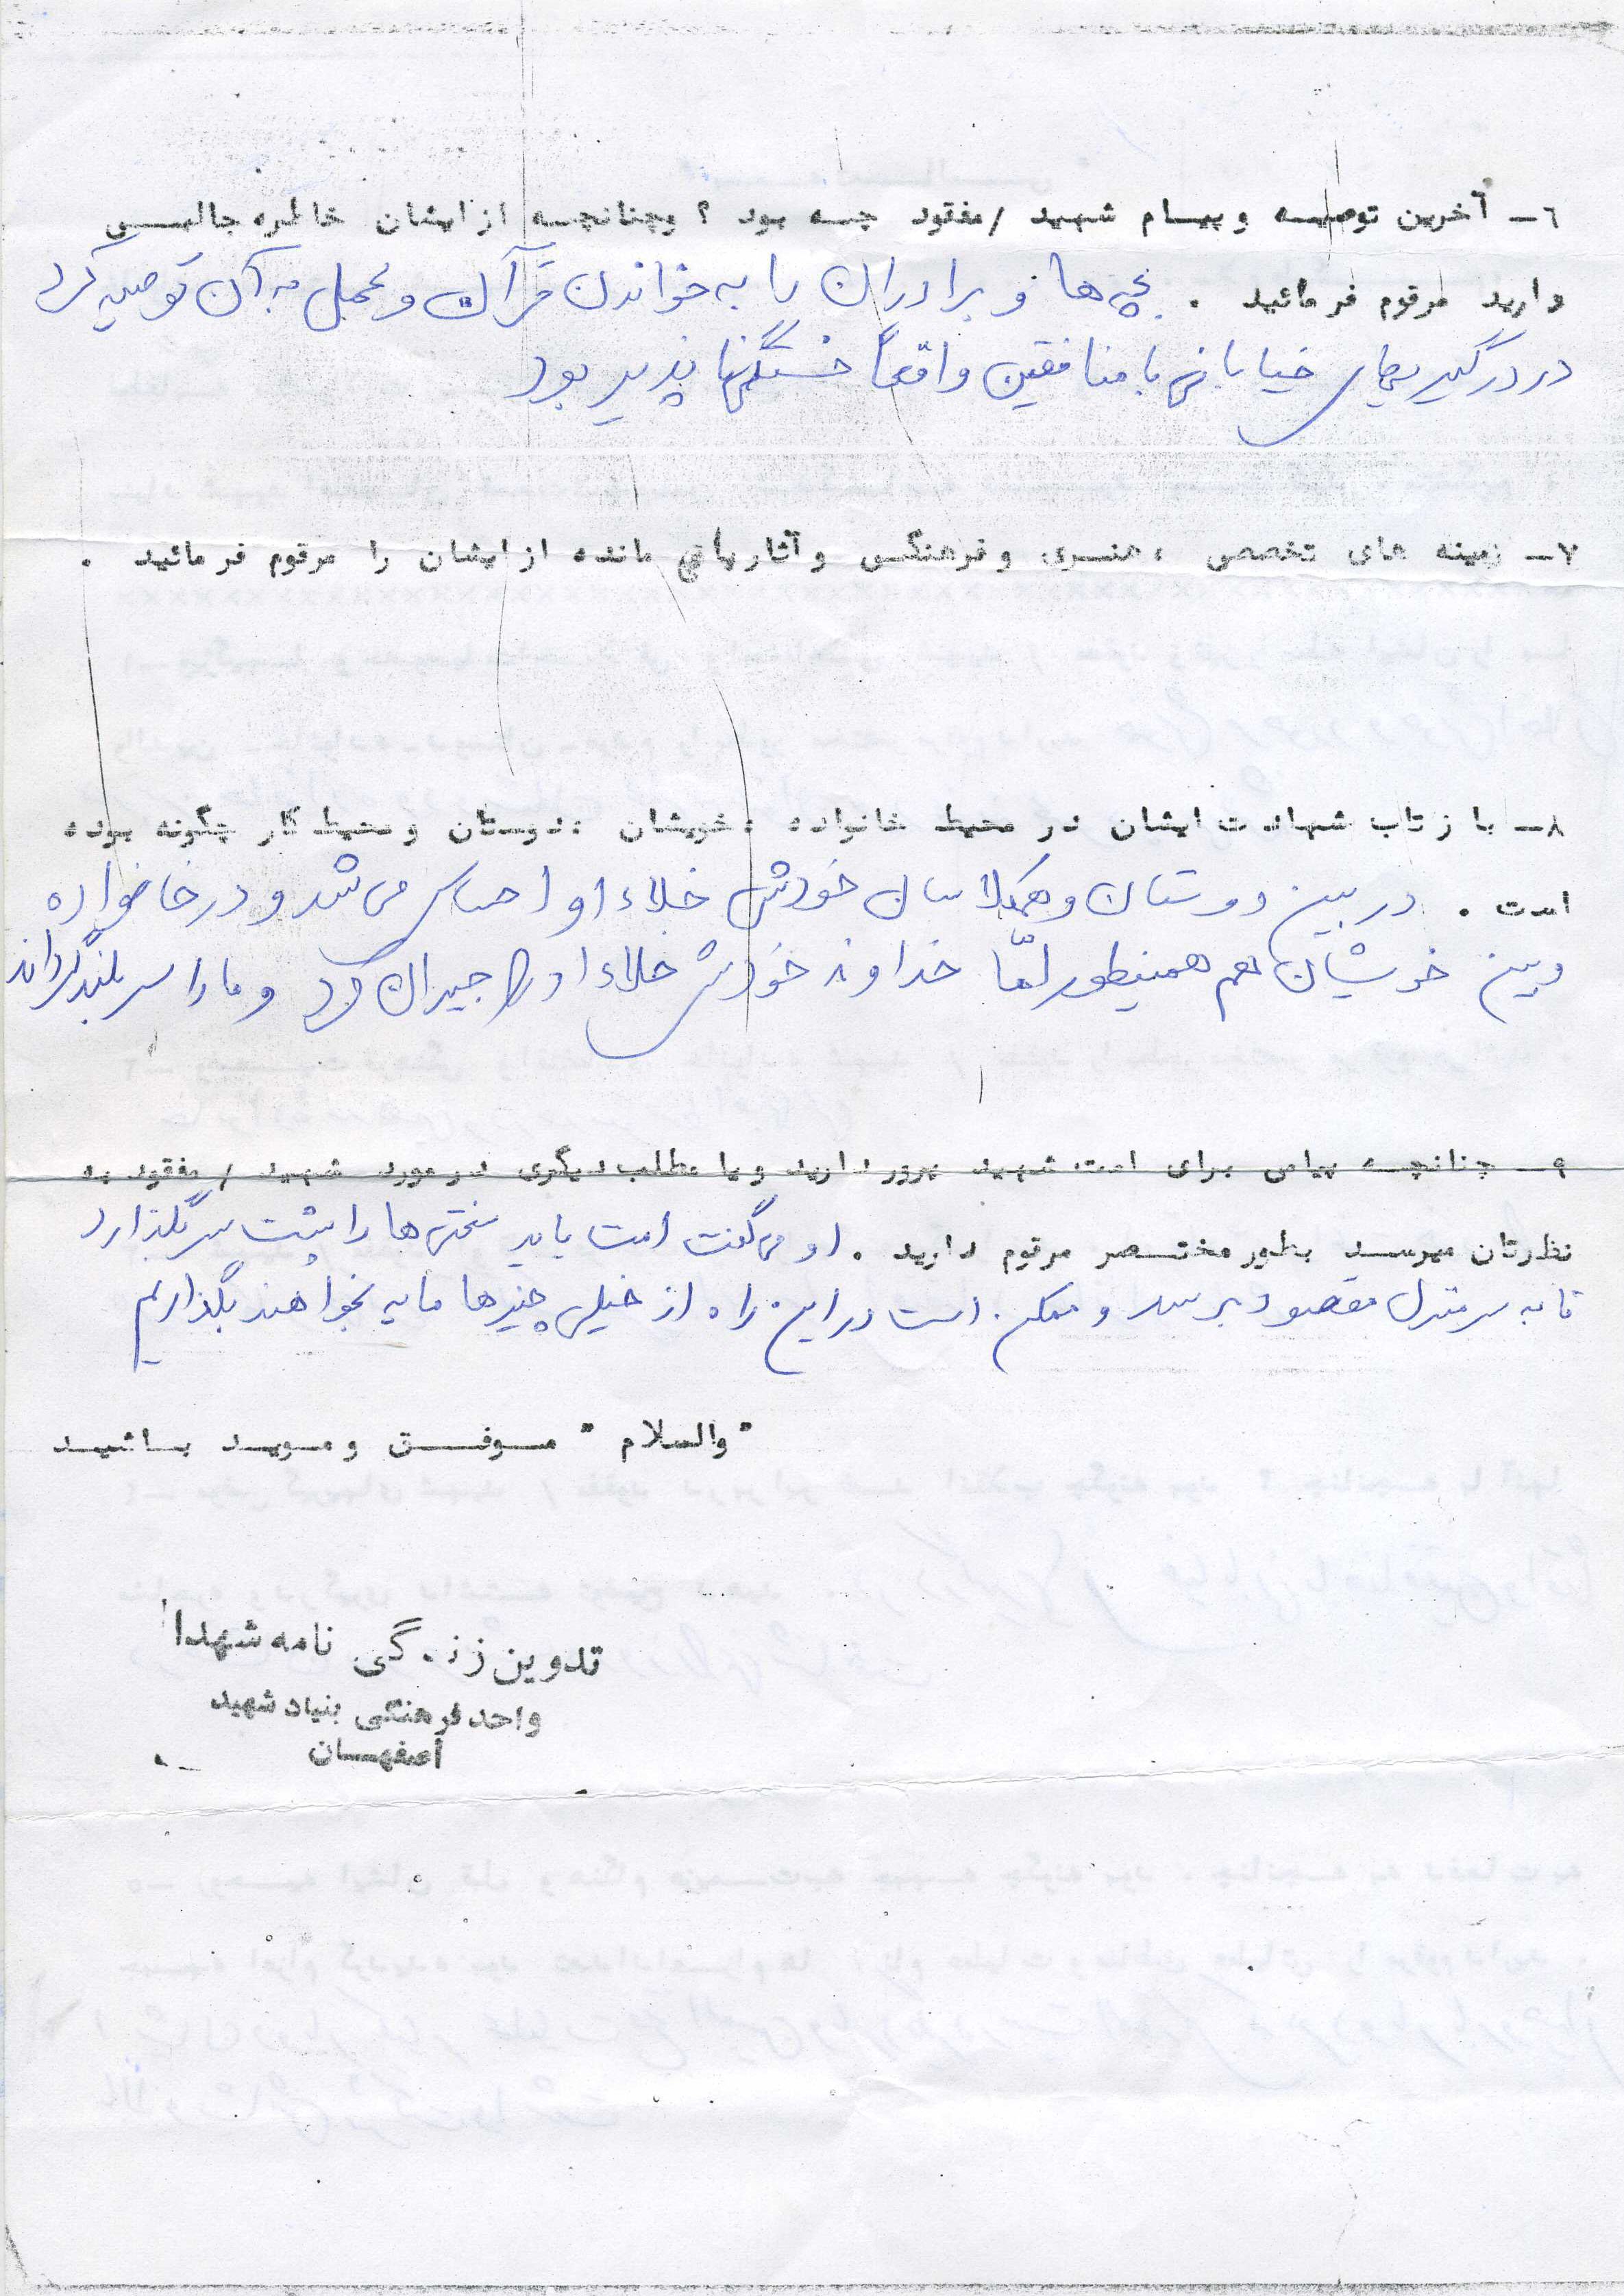 ٦ـ آخرین توصیه و پیام شهید /مفقود چه بود ؟ وچنانچه از ایشان خاطره جالبی
دارید مرقوم فرمائید . بچه ها و برادران را به خواندن قرآن و عمل به آن توصیه کرد
در درگیریهای خیابانی با منافقین واقعاً خستگی ناپذیر بود
۷ـ زمینه های تخصصی ، هنری و فرهنگی و آثار باقی مانده از ایشان را مرقوم فرمائید .
۸ـ بازتاب شهادت ایشان در محیط خانواده ، خویشان ، دوستان و محیط کار چگونه بوده
است . در بین دوستان و همکلاسان خودش خلاء او احساس می شد و در خانواده
وبین خویشان هم همینطور امّا خداوند خودش خلاء او را جبران کرد و ما را سربلند گرداند
۹ـ چنانچه پیامی برای امت شهید پرور دارید و یا مطلب دیگری در مورد شهید / مفقود به
نظرتان میرسد بطور مختصر مرقوم دارید . او می گفت امت باید سختی ها را پشت سر بگذارد
تا به سر منزل مقصود برسد و ممکن است در این راه از خیلی چیزها مایه بخواهند بگذاریم
"والسلام " موفق و موید باشید
تدوین زندگی نامه شهدا
واحد فرهنگی بنیاد شهید
اصفهان